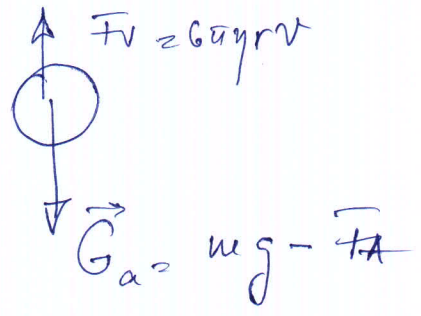 Fv = 6πηrv
G⃗a = mg - FA